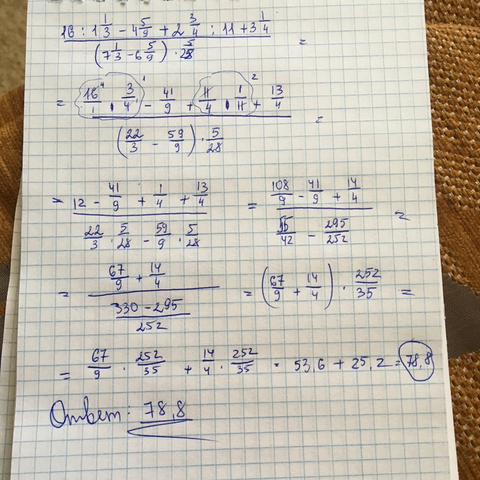 16 : 1 1/3 - 4 5/9 + 2 3/4 : 11 + 3 1/4 / (7 1/3 - 6 5/9) · 5/28 =
= 16/1 · 3/4 - 41/9 + 11/4 · 1/11 + 13/4 / (22/3 - 59/9) · 5/28 =
= 12 - 41/9 + 1/4 + 13/4 / 22/3 · 5/28 - 59/9 · 5/28 = 108/9 - 41/9 + 14/4 / 55/42 - 295/252 =
= 67/9 + 14/4 / 330 - 295/252 = (67/9 + 14/4) · 252/35 =
= 67/9 · 252/35 + 14/4 · 252/35 = 53,6 + 25,2 = 78,8
Ответ: 78,8